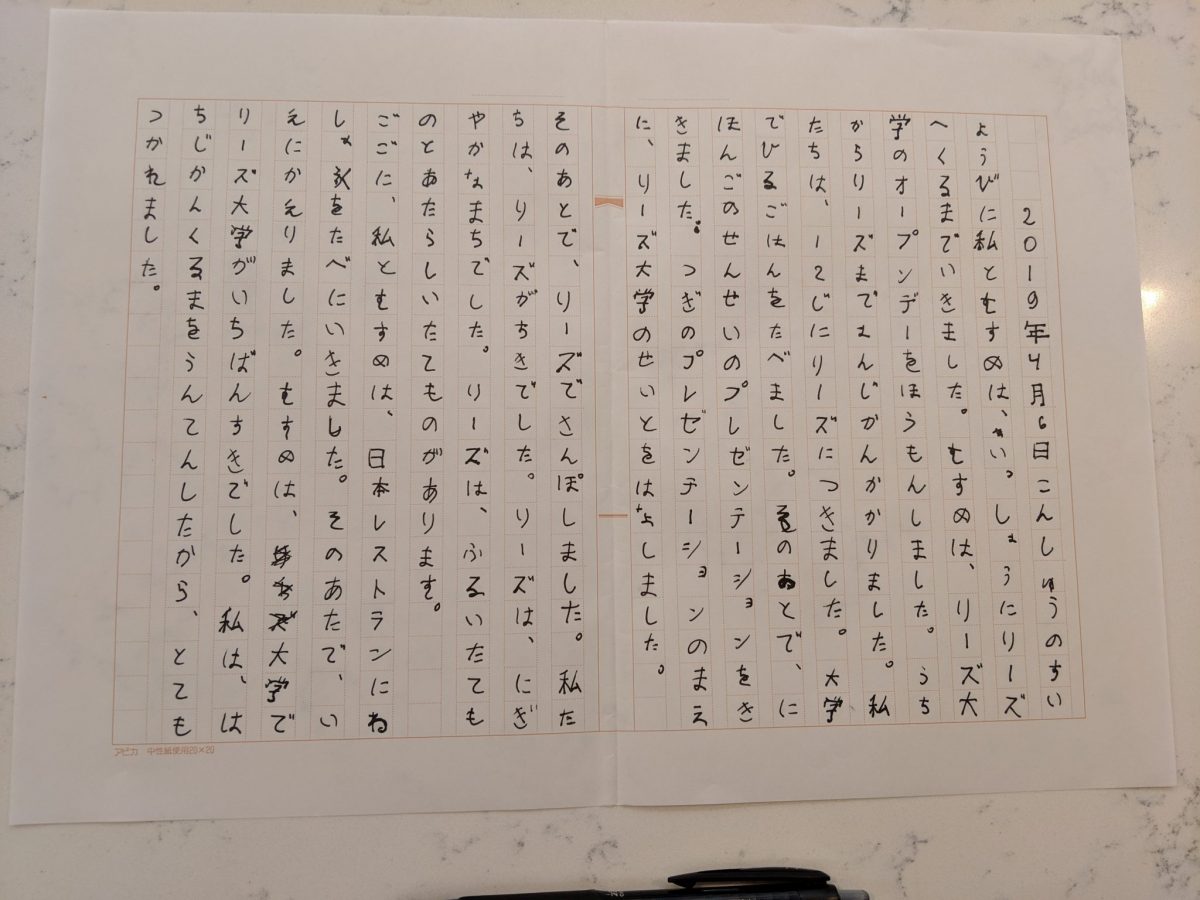 2019年4月6日こんしゅうのちい
ようびに私とむすめは、いっしょうにリーズ
へくるまでいきました。むすめは、リーズ大
学のオープンデーをほうもんしました。うち
からリーズまでんじかんかかりました。私
たちは、12じにリーズにつきました。大学
でひるごはんをたべました。そのあとで、に
ほんごのせんせいのプレゼンテーションをき
きました。つぎのプレゼンテーションのまえ
に、リーズ大学のせいとをはなしました。
そのあとで、リーズでさんぽしました。私た
ちは、リーズがちきでした。リーズは、にぎ
やかなまちでした。リーズは、ふるいたても
のとあたらしいたてものがあります。
ごごに、私とむすめは、日本レストランにね
しをたべにいきました。そのあたで、い
えにかえりました。むすめは、大学で
リーズ大学がいちばんちきでした。私は、は
ちじかんくるまをうんてんしたから、とても
つかれました。
アピカ 中性紙使用20×20